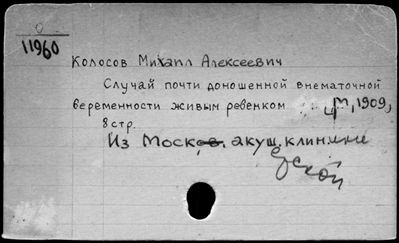 0
11960
Колосов Михаил Алексеевич
Случай почти доношенной внематочной
беременности живым ребенком 1909,
8 стр.
Из Моск. акуш. клиники
ской